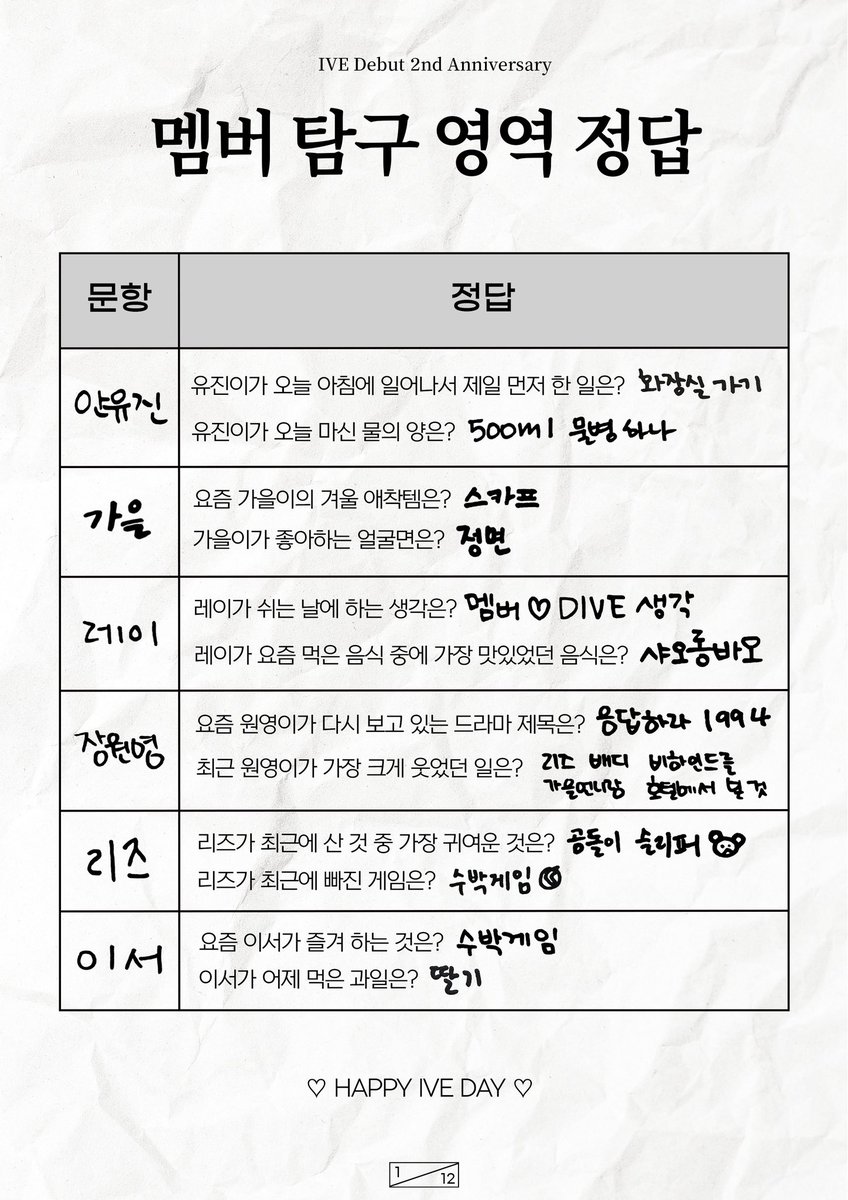 IVE Debut 2nd Anniversary
멤버 탐구 영역 정답
문항 정답
안유진
유진이가 오늘 아침에 일어나서 제일 먼저 한 일은? 화장실 가기
유진이가 오늘 마신 물의 양은? 500ml 물병 하나
가을
요즘 가을이의 겨울 애착템은? 스카프
가을이가 좋아하는 얼굴면은? 정면
레이
레이가 쉬는 날에 하는 생각은? 멤버 ♡ DIVE 생각
레이가 요즘 먹은 음식 중에 가장 맛있었던 음식은? 샤오롱바오
장원영
요즘 원영이가 다시 보고 있는 드라마 제목은? 응답하라 1994
최근 원영이가 가장 크게 웃었던 일은? 리즈 배디 비하인드를
가을언니랑 호텔에서 본 것
리즈
리즈가 최근에 산 것 중 가장 귀여운 것은? 곰돌이 슬리퍼
리즈가 최근에 빠진 게임은? 수박게임
이서
요즘 이서가 즐겨 하는 것은? 수박게임
이서가 어제 먹은 과일은? 딸기
♡ HAPPY IVE DAY ♡
1
12